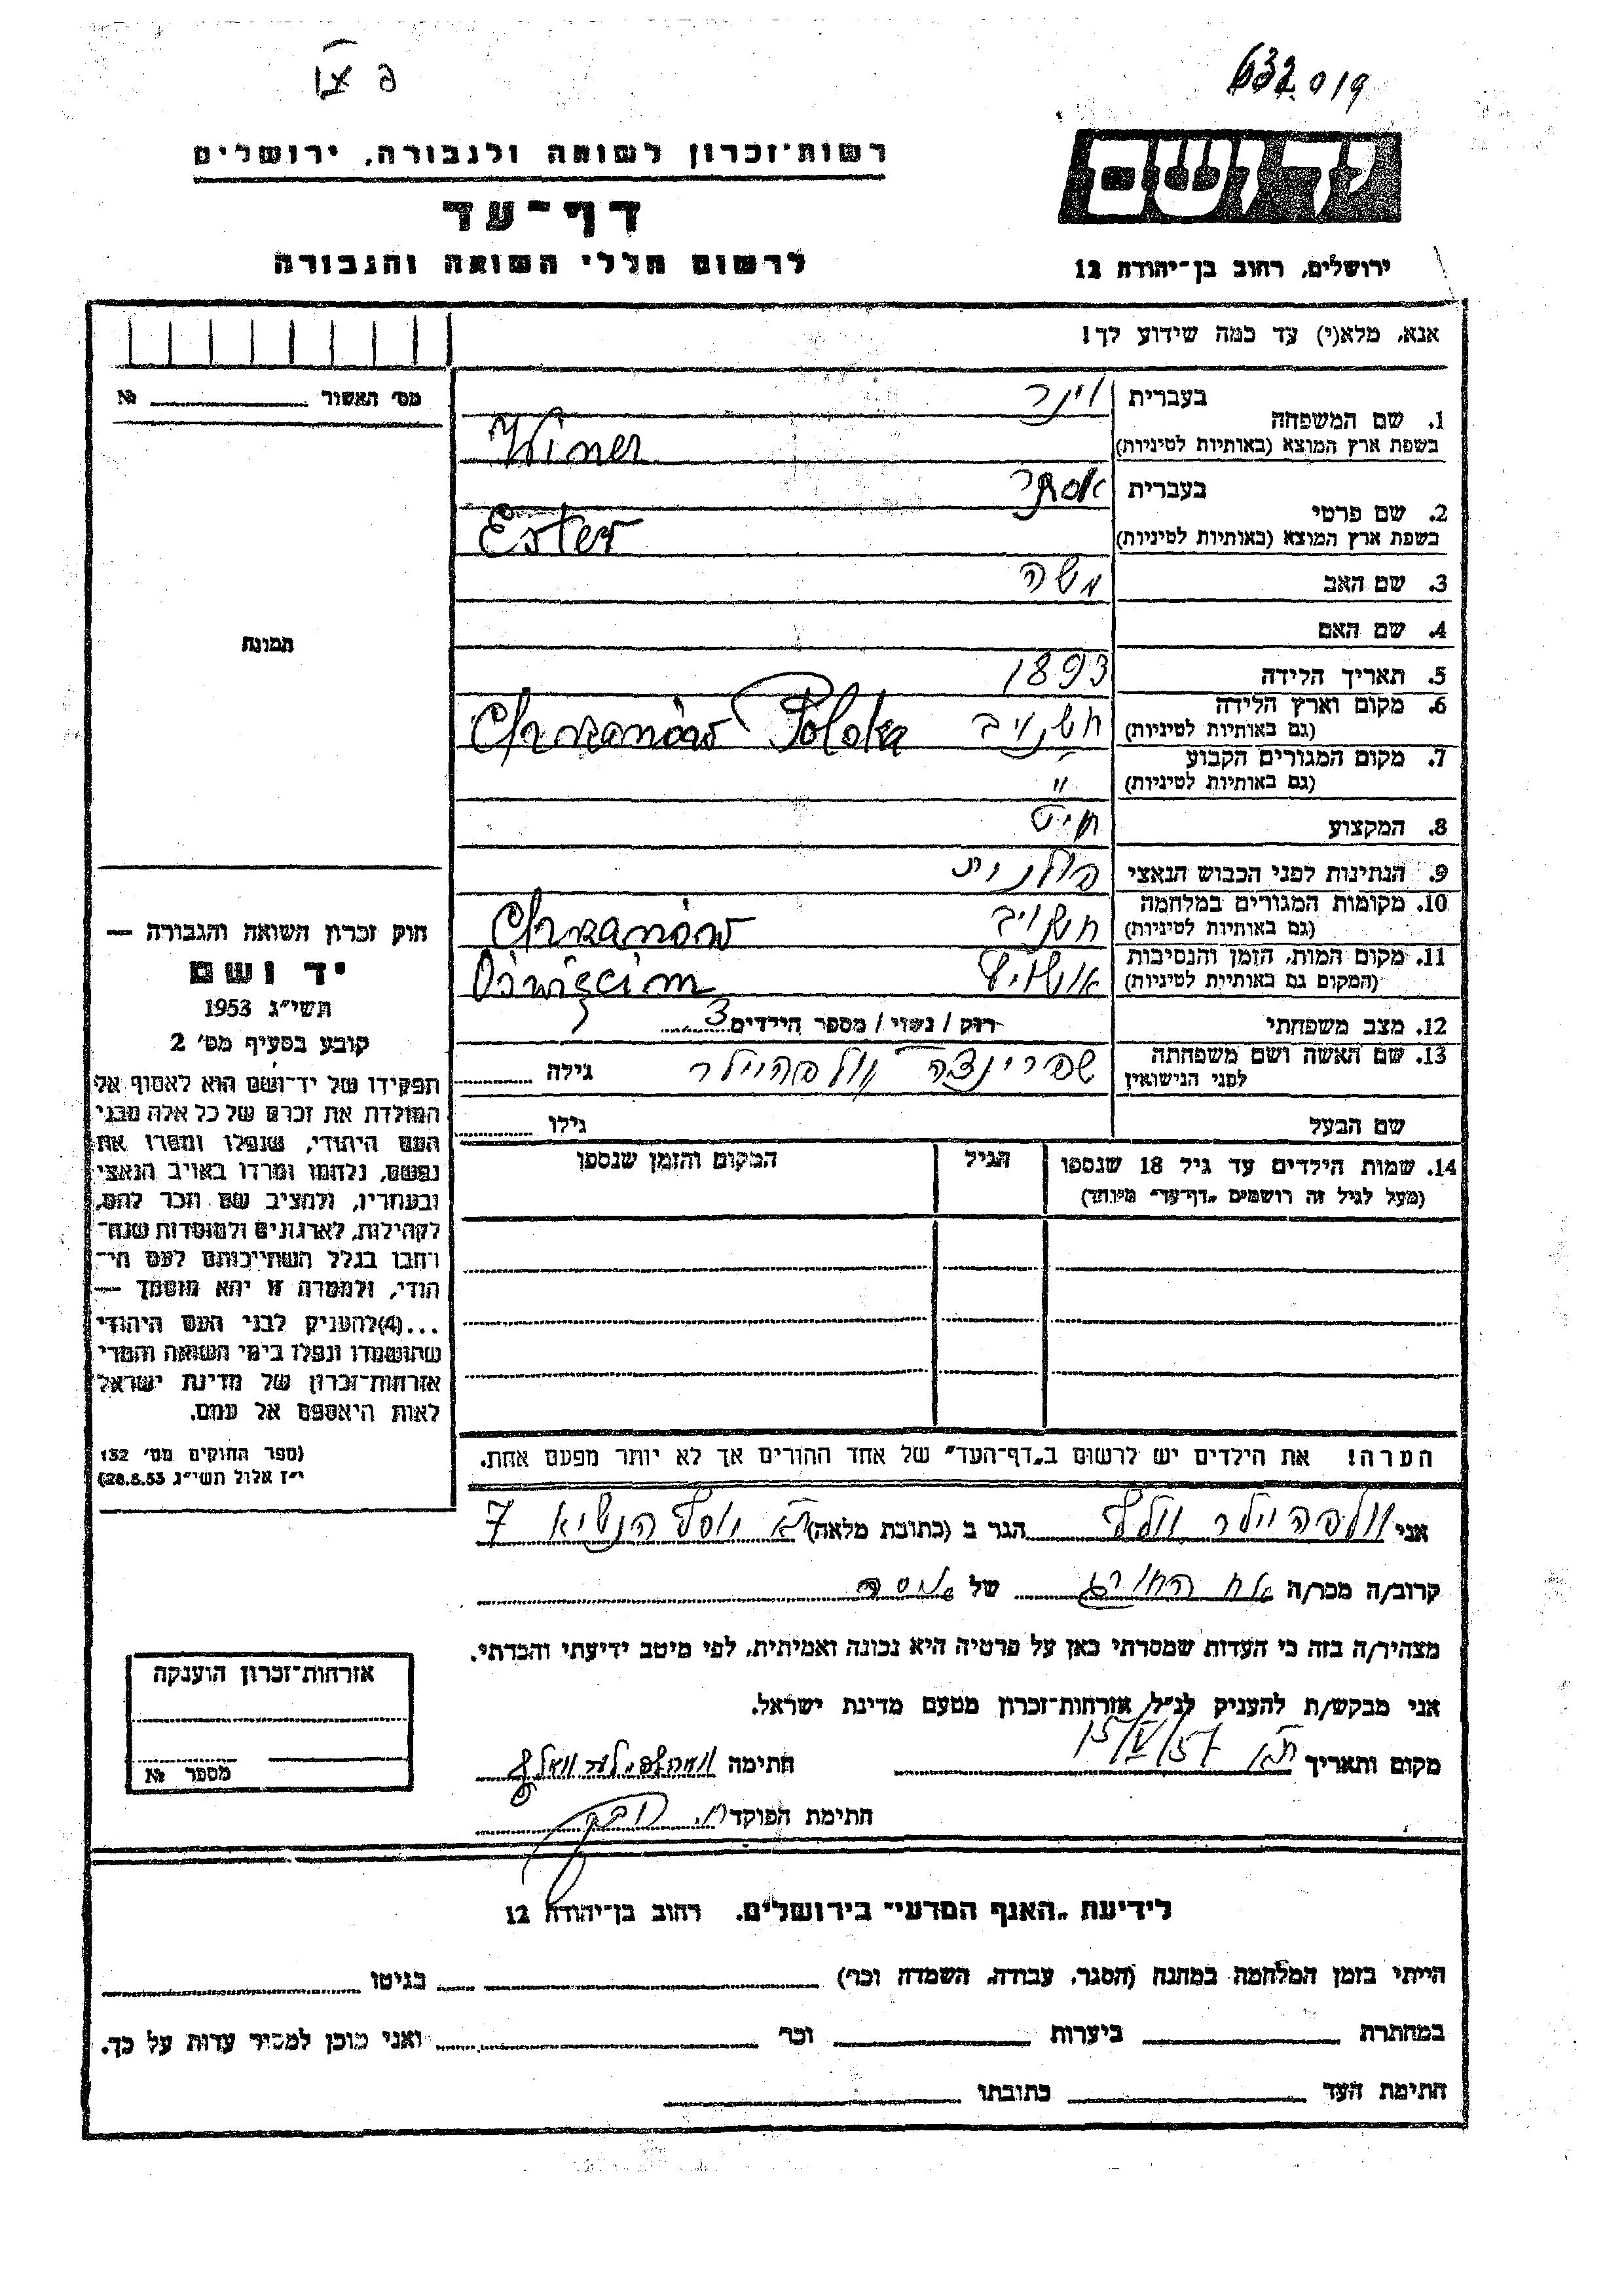 632019
רשות־זכרון לשואה ולגבורה, ירושלים
דף־עד
לרשום חללי השואה והגבורה
יד ושם
ירושלים, רחוב בן־יהודה 12
אנא, מלא(י) עד כמה שידוע לך!
מס׳ האשור № 
1. שם המשפחה
בעברית וינר
בשפת ארץ המוצא (באותיות לטיניות) Winer
2. שם פרטי
בעברית אסתר
בשפת ארץ המוצא (באותיות לטיניות) Ester
3. שם האב משה
4. שם האם
תמונה
5. תאריך הלידה 1893
6. מקום וארץ הלידה
(גם באותיות לטיניות) חשנויב Chrzanów Polska
7. מקום המגורים הקבוע
(גם באותיות לטיניות) "
8. המקצוע חייט
9. הנתינות לפני הכבוש הנאצי פולנית
10. מקומות המגורים במלחמה
(גם באותיות לטיניות) Chrzanów
11. מקום המות, הזמן והנסיבות
(המקום גם באותיות לטיניות) אושוויץ Oświęcim
12. מצב משפחתי רווק / נשוי / מספר הילדים 3
13. שם האשה ושם משפחתה
לפני הנישואין שפרינצה וולפהיילר גילה
שם הבעל גילו
14. שמות הילדים עד גיל 18 שנספו הגיל המקום והזמן שנספו
(מעל לגיל זה רושמים „דף־עד" מיוחד)
הערה! את הילדים יש לרשום ב„דף־העד" של אחד ההורים אך לא יותר מפעם אחת.
חוק זכרון השואה והגבורה —
יד ושם
תשי״ג 1953
קובע בסעיף מס׳ 2
תפקידו של יד־ושם הוא לאסוף אל
המולדת את זכרם של כל אלה מבני
העם היהודי, שנפלו ומסרו את
נפשם, נלחמו ומרדו באויב הנאצי
ובעוזריו, ולהציב שם וזכר להם,
לקהילות, לארגונים ולמוסדות שנח־
רבו בגלל השתייכותם לעם הי־
הודי, ולמטרה זו יהא מוסמך —
...(4) להעניק לבני העם היהודי
שהושמדו ונפלו בימי השואה והמרי
אזרחות־זכרון של מדינת ישראל
לאות היאספם אל עמם.
(ספר החוקים מס׳ 132
י״ז אלול תשי״ג 28.8.53)
אני וולפהיילר וולף הגר ב (כתובת מלאה) ת״א יוסף הנשיא 7
קרוב/ה מכר/ה אח החורג של אסתר
מצהיר/ה בזה כי העדות שמסרתי כאן על פרטיה היא נכונה ואמיתית, לפי מיטב ידיעתי והכרתי.
אני מבקש/ת להעניק לנ״ל אזרחות־זכרון מטעם מדינת ישראל.
מקום ותאריך ת״א 15/V/57 חתימה
חתימת הפוקד
אזרחות־זכרון הוענקה
מספר №
לידיעת „האגף המדעי" בירושלים. רחוב בן־יהודה 12
הייתי בזמן המלחמה במחנה (הסגר, עבודה, השמדה וכו׳) בגיטו
במחתרת ביערות וכו׳ ואני מוכן למסור עדות על כך.
חתימת העד כתובתו